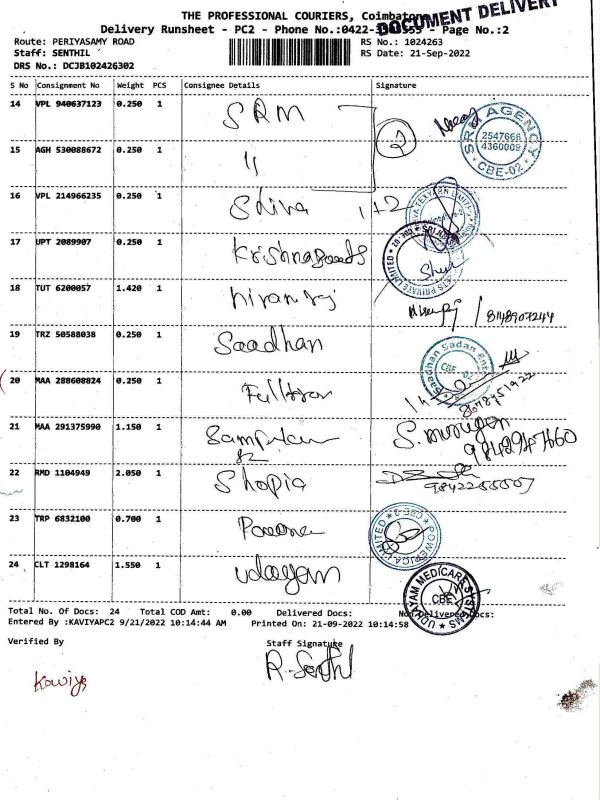 THE PROFESSIONAL COURIERS, Coimbatore
DOCUMENT DELIVERY
Delivery Runsheet - PC2 - Phone No.:0422- Page No.:2
Route: PERIYASAMY ROAD
RS No.: 1024263
Staff: SENTHIL
RS Date: 21-Sep-2022
DRS No.: DCJB102426302
S No Consignment No Weight PCS Consignee Details Signature
14 VPL 940637123 0.250 1 SRM
SRM AGENCY
2547666
4360009
CBE-02
2
15 AGH 530088672 0.250 1 "
16 VPL 214966235 0.250 1 Shiva 1+2
17 UPT 2089907 0.250 1 Krishnagoods
18 TUT 6200057 1.420 1 niranraj / 8148907244
19 TRZ 50588038 0.250 1 Saadhan
Saadhan Sadan
CBE-02
20 MAA 288608824 0.250 1
21 MAA 291375990 1.150 1 S. murugan
22 RMD 1104949 2.050 1 Shopia
23 TRP 6832100 0.700 1
POWERICA LIMITED CBE-2
24 CLT 1298164 1.550 1 udayam
UDHAYAM MEDICARE SYSTEMS
CBE
Total No. Of Docs: 24 Total COD Amt: 0.00 Delivered Docs: Non Delivered Docs:
Entered By :KAVIYAPC2 9/21/2022 10:14:44 AM Printed On: 21-09-2022 10:14:58
Verified By Staff Signature
Kaviya R. Senthil